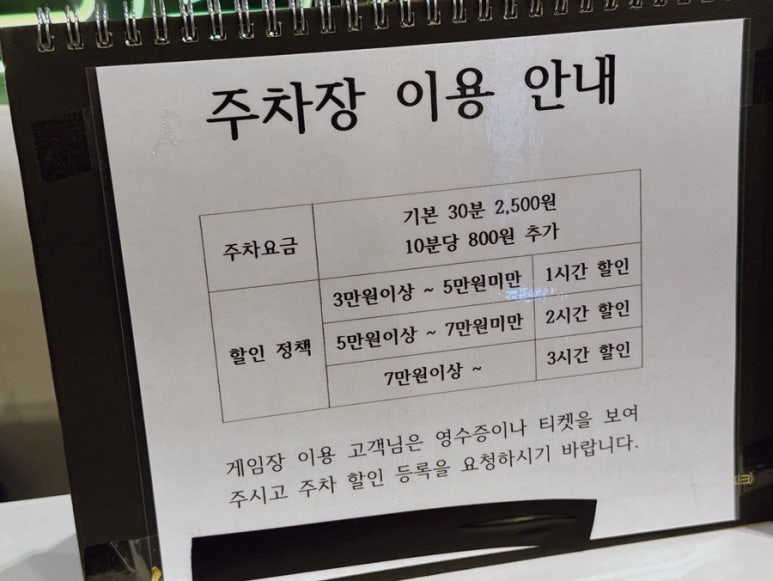 주차장 이용 안내
주차요금
기본 30분 2,500원
10분당 800원 추가
할인 정책
3만원이상 ~ 5만원미만 1시간 할인
5만원이상 ~ 7만원미만 2시간 할인
7만원이상 ~ 3시간 할인
게임장 이용 고객님은 영수증이나 티켓을 보여
주시고 주차 할인 등록을 요청하시기 바랍니다.